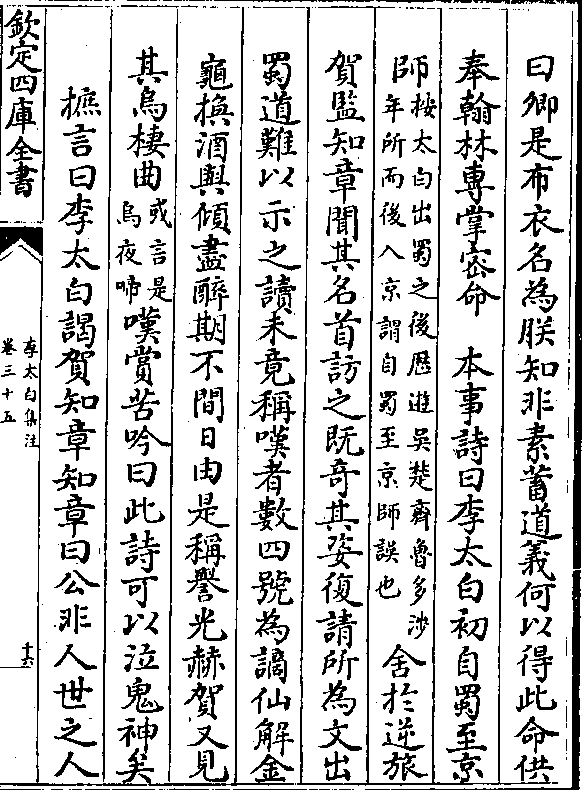 曰卿是布衣名為朕知非素蓄道義何以得此命供
奉翰林專掌密命　本事詩曰李太白初自蜀至京
師按太白出蜀之後歴遊吳楚齊魯多渉年所而後入京謂自蜀至京師誤也舍於逆旅
賀監知章聞其名首訪之既奇其姿復請所為文出
蜀道難以示之讀未竟稱嘆者數四號為謫仙解金
龜換酒與傾盡醉期不間日由是稱譽光赫賀又見
其烏棲曲或言是烏夜啼嘆賞苦吟曰此詩可以泣鬼神矣
摭言曰李太白謁賀知章知章曰公非人世之人
欽定四庫全書
李太白集注
卷三十五
十六